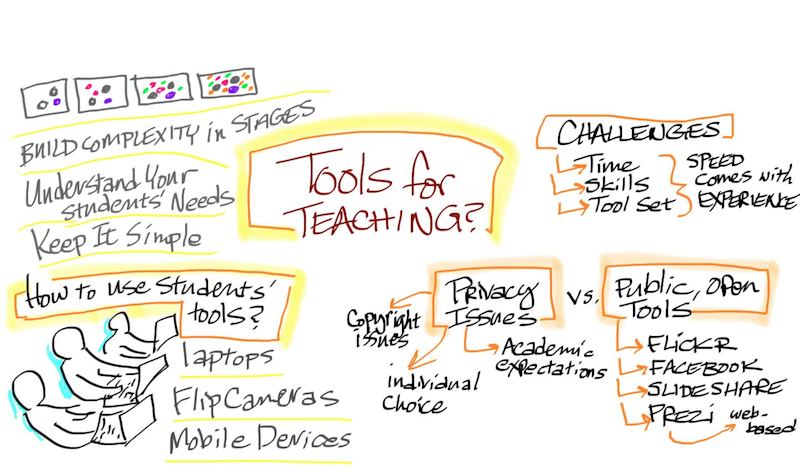 BUILD COMPLEXITY in STAGES
Understand Your
students' Needs
Keep It Simple
Tools for
TEACHING?
CHALLENGES
Time
Skills
Tool Set
SPEED
comes with
EXPERIENCE
How to use students'
tools?
laptops
Flip Cameras
Mobile Devices
Privacy
Issues
Copyright
issues
individual
Choice
Academic
expectations
VS.
Public, Open
Tools
FLICKR
FACEBOOK
SLIDESHARE
PREZI
web-
based